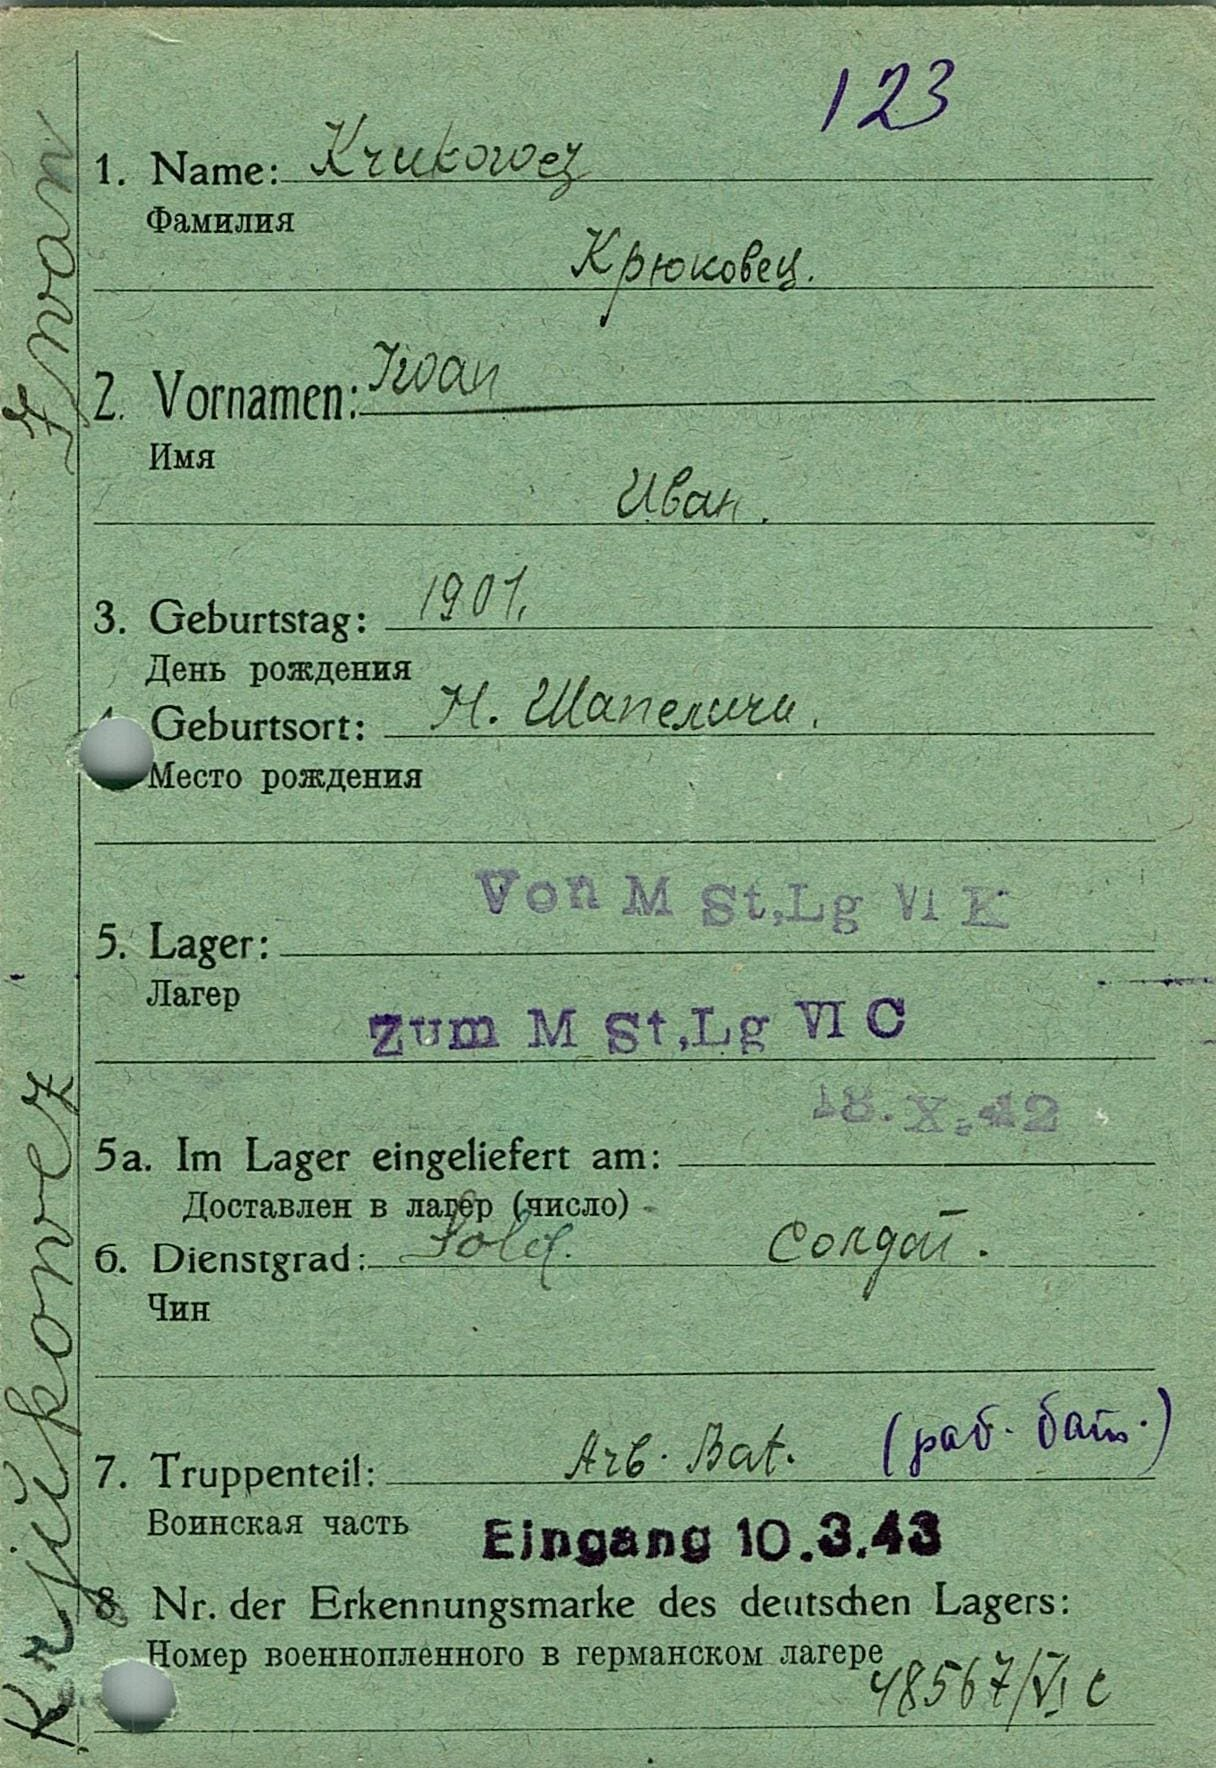 123
1. Name: Krukowez
Фамилия
Крюковец.
2. Vornamen: Iwan
Имя
Иван.
3. Geburtstag: 1901.
День рождения
4. Geburtsort: Н. Шапеличи.
Место рождения
Von M St,Lg VI K
5. Lager:
Лагер
Zum M St,Lg VI C
18.X.42
5a. Im Lager eingeliefert am:
Доставлен в лагер (число)
6. Dienstgrad: Sold. Солдат.
Чин
7. Truppenteil: Arb. Bat. (раб. бат.)
Воинская часть
Eingang 10.3.43
8 Nr. der Erkennungsmarke des deutschen Lagers:
Номер военнопленного в германском лагере
48567/VI C
Krjükowez Iwan